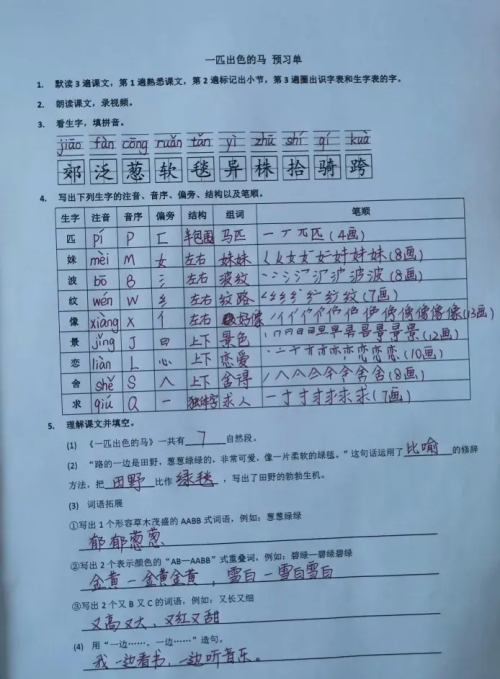 一匹出色的马 预习单
1. 默读3遍课文，第1遍熟悉课文，第2遍标记出小节，第3遍圈出识字表和生字表的字。
2. 朗读课文，录视频。
3. 看生字，填拼音。
jiāo fàn cōng ruǎn tǎn yì zhū shí qí kuà
郊 泛 葱 软 毯 异 株 拾 骑 跨
4. 写出下列生字的注音、音序、偏旁、结构以及笔顺。
生字 注音 音序 偏旁 结构 组词 笔顺
匹 pí P 匚 半包围 马匹 一 丆 兀 匹 (4画)
妹 mèi M 女 左右 妹妹 (8画)
波 bō B 氵 左右 波纹 (8画)
纹 wén W 纟 左右 纹路 (7画)
像 xiàng X 亻 左右 好像 (13画)
景 jǐng J 日 上下 景色 (12画)
恋 liàn L 心 上下 恋爱 (10画)
舍 shě S 人 上下 舍得 (8画)
求 qiú Q 一 独体字 求人 (7画)
5. 理解课文并填空。
(1) 《一匹出色的马》一共有 7 自然段。
(2) “路的一边是田野，葱葱绿绿的，非常可爱，像一片柔软的绿毯。”这句话运用了 比喻 的修辞
方法，把 田野 比作 绿毯 ，写出了田野的勃勃生机。
(3) 词语拓展
①写出1个形容草木茂盛的AABB式词语，例如：葱葱绿绿
郁郁葱葱
②写出2个表示颜色的“AB—AABB”式重叠词，例如：碧绿—碧绿碧绿
金黄—金黄金黄，雪白—雪白雪白
③写出2个又B又C的词语，例如：又长又细
又高又大，又红又甜
(4) 用“一边……，一边……”造句。
我一边看书，一边听音乐。